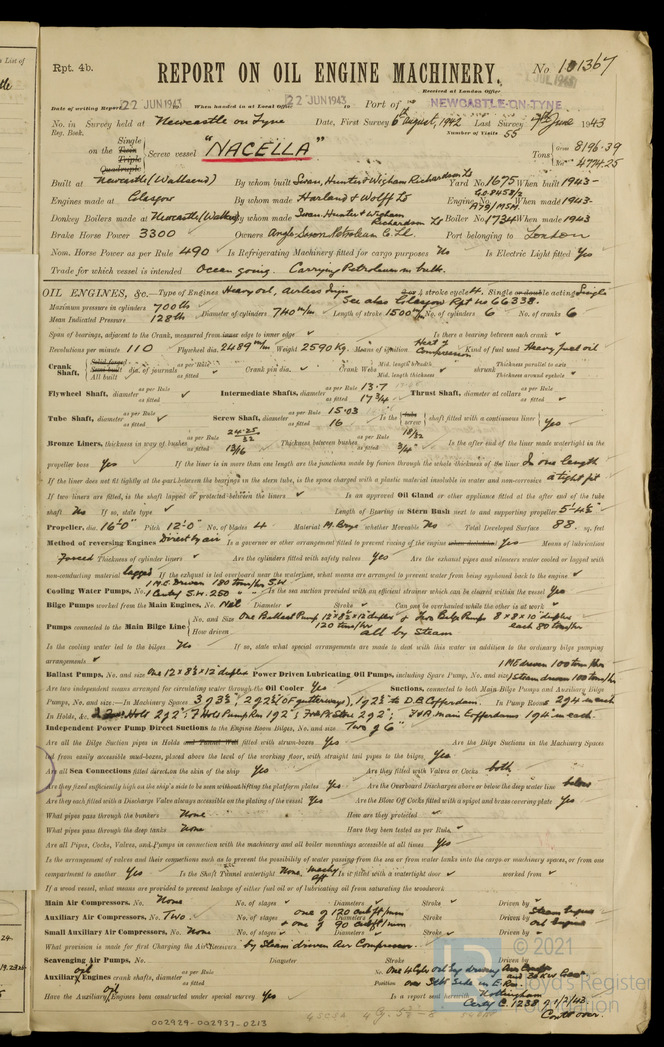 Rpt. 4b.
REPORT ON OIL ENGINE MACHINERY.
No 101367
Received at London Office
Date of writing Report 22 JUN 1943 When handed in at Local Office 22 JUN 1943 Port of NEWCASTLE-ON-TYNE
No. in Survey held at Newcastle on Tyne Date, First Survey 6th August, 1942 Last Survey June 1943
Reg. Book. Number of Visits 55
on the Single Twin Triple Quadruple Screw vessel "NACELLA" Tons Gross 8196.39 Net 4774.25
Built at Newcastle (Wallsend) By whom built Swan, Hunter & Wigham Richardson Ld Yard No 1675 When built 1943
Engines made at Glasgow By whom made Harland & Wolff Ld Engine No. When made 1943
Donkey Boilers made at Newcastle (Walker) By whom made Swan Hunter & Wigham Richardson Ld Boiler No 1734 When made 1943
Brake Horse Power 3300 Owners Anglo Saxon Petroleum Co. Ld. Port belonging to London
Nom. Horse Power as per Rule 490 Is Refrigerating Machinery fitted for cargo purposes No Is Electric Light fitted Yes
Trade for which vessel is intended Ocean going. Carrying Petroleum in bulk.
OIL ENGINES, &c.—Type of Engines Heavy oil, airless Injn 2 or 4 stroke cycle 4 Single or double acting Single
See also Glasgow Rpt No 66338.
Maximum pressure in cylinders 700 lb Diameter of cylinders 740 m/m Length of stroke 1500 m/m No. of cylinders 6 No. of cranks 6
Mean Indicated Pressure 128 lb
Span of bearings, adjacent to the Crank, measured from inner edge to inner edge Is there a bearing between each crank
Revolutions per minute 110 Flywheel dia. 2489 m/m Weight 2590 Kg. Means of ignition Heat of Compression Kind of fuel used Heavy fuel oil
Crank Shaft, Solid forged Semi built All built dia. of journals as per Rule as fitted Crank pin dia. Crank Webs Mid. length breadth Mid. length thickness shrunk Thickness parallel to axis Thickness around eyehole
Flywheel Shaft, diameter as per Rule as fitted Intermediate Shafts, diameter as per Rule 13.7 as fitted 17 3/4 Thrust Shaft, diameter at collars as per Rule as fitted
Tube Shaft, diameter as per Rule as fitted Screw Shaft, diameter as per Rule 15.03 as fitted 16 Is the tube screw shaft fitted with a continuous liner Yes
Bronze Liners, thickness in way of bushes as per Rule 24.25/32 as fitted 13/16 Thickness between bushes as per Rule 18/32 as fitted 3/4" Is the after end of the liner made watertight in the
propeller boss Yes If the liner is in more than one length are the junctions made by fusion through the whole thickness of the liner In one length
If the liner does not fit tightly at the part between the bearings in the stern tube, is the space charged with a plastic material insoluble in water and non-corrosive a tight fit
If two liners are fitted, is the shaft lapped or protected between the liners Is an approved Oil Gland or other appliance fitted at the after end of the tube
shaft No If so, state type Length of Bearing in Stern Bush next to and supporting propeller 5'-4 1/2"
Propeller, dia. 16'-0" Pitch 12'-0" No. of blades 4 Material M. Bronze whether Moveable No Total Developed Surface 88 sq. feet
Method of reversing Engines Direct by air Is a governor or other arrangement fitted to prevent racing of the engine when declutched Yes Means of lubrication
Forced Thickness of cylinder liners Are the cylinders fitted with safety valves Yes Are the exhaust pipes and silencers water cooled or lagged with
non-conducting material lagged If the exhaust is led overboard near the waterline, what means are arranged to prevent water from being syphoned back to the engine
Cooling Water Pumps, No. 1 M.E. Driven 180 tons/hr S.W. 1 Auxy S.W. 250 Is the sea suction provided with an efficient strainer which can be cleared within the vessel Yes
Bilge Pumps worked from the Main Engines, No. Nil Diameter Stroke Can one be overhauled while the other is at work
Pumps connected to the Main Bilge Line No. and Size One Ballast Pump 12 x 8 1/2 x 12 duplex 120 tons/hr & Two Bilge Pumps 8 x 8 x 10 duplex each 80 tons/hr
How driven all by Steam
Is the cooling water led to the bilges No If so, state what special arrangements are made to deal with this water in addition to the ordinary bilge pumping
arrangements
Ballast Pumps, No. and size One 12 x 8 1/2 x 12 duplex Power Driven Lubricating Oil Pumps, including Spare Pump, No. and size 1 ME driven 100 tons/hr 1 steam driven 100 tons/hr
Are two independent means arranged for circulating water through the Oil Cooler Yes Suctions, connected to both Main Bilge Pumps and Auxiliary Bilge
Pumps, No. and size:—In Machinery Spaces 3 @ 3 1/2", 2 @ 2 1/2 (OF gutterways), 1 @ 2 1/2 to D.B. Cofferdam. In Pump Room 2 @ 4 in each
In Holds, &c. Hold 2 @ 2", Hold Pump Rm 1 @ 2", Store 2 @ 2", F & A main Cofferdams 1 @ 4 in each.
Independent Power Pump Direct Suctions to the Engine Room Bilges, No. and size Two @ 6"
Are all the Bilge Suction pipes in Holds and Tunnel Well fitted with strum-boxes Yes Are the Bilge Suctions in the Machinery Spaces
led from easily accessible mud-boxes, placed above the level of the working floor, with straight tail pipes to the bilges Yes
Are all Sea Connections fitted direct on the skin of the ship Yes Are they fitted with Valves or Cocks both
Are they fixed sufficiently high on the ship's side to be seen without lifting the platform plates Yes Are the Overboard Discharges above or below the deep water line below
Are they each fitted with a Discharge Valve always accessible on the plating of the vessel Yes Are the Blow Off Cocks fitted with a spigot and brass covering plate Yes
What pipes pass through the bunkers None How are they protected
What pipes pass through the deep tanks None Have they been tested as per Rule
Are all Pipes, Cocks, Valves, and Pumps in connection with the machinery and all boiler mountings accessible at all times Yes
Is the arrangement of valves and their connections such as to prevent the possibility of water passing from the sea or from water tanks into the cargo or machinery spaces, or from one
compartment to another Yes Is the Shaft Tunnel watertight None, machy aft Is it fitted with a watertight door worked from
If a wood vessel, what means are provided to prevent leakage of either fuel oil or of lubricating oil from saturating the woodwork
Main Air Compressors, No. None No. of stages Diameters Stroke Driven by
Auxiliary Air Compressors, No. Two No. of stages one of 120 cub ft/min Diameters Stroke Driven by Steam Engine
Small Auxiliary Air Compressors, No. None No. of stages + one of 90 cub ft/min Diameters Stroke Driven by Oil Engine
What provision is made for first Charging the Air Receivers by Steam driven Air Compressor.
Scavenging Air Pumps, No. Diameter Stroke Driven by
Auxiliary oil Engines crank shafts, diameter as per Rule as fitted No. One 4 Cyl oil Eng driving Position Stbd Side in E. Rm
Have the Auxiliary oil Engines been constructed under special survey Yes Is a report sent herewith Nottingham
Certf C. 1238 of 1/2/43.
Contd over.
002929-002937-0213
© 2021
Lloyd's Register
Foundation